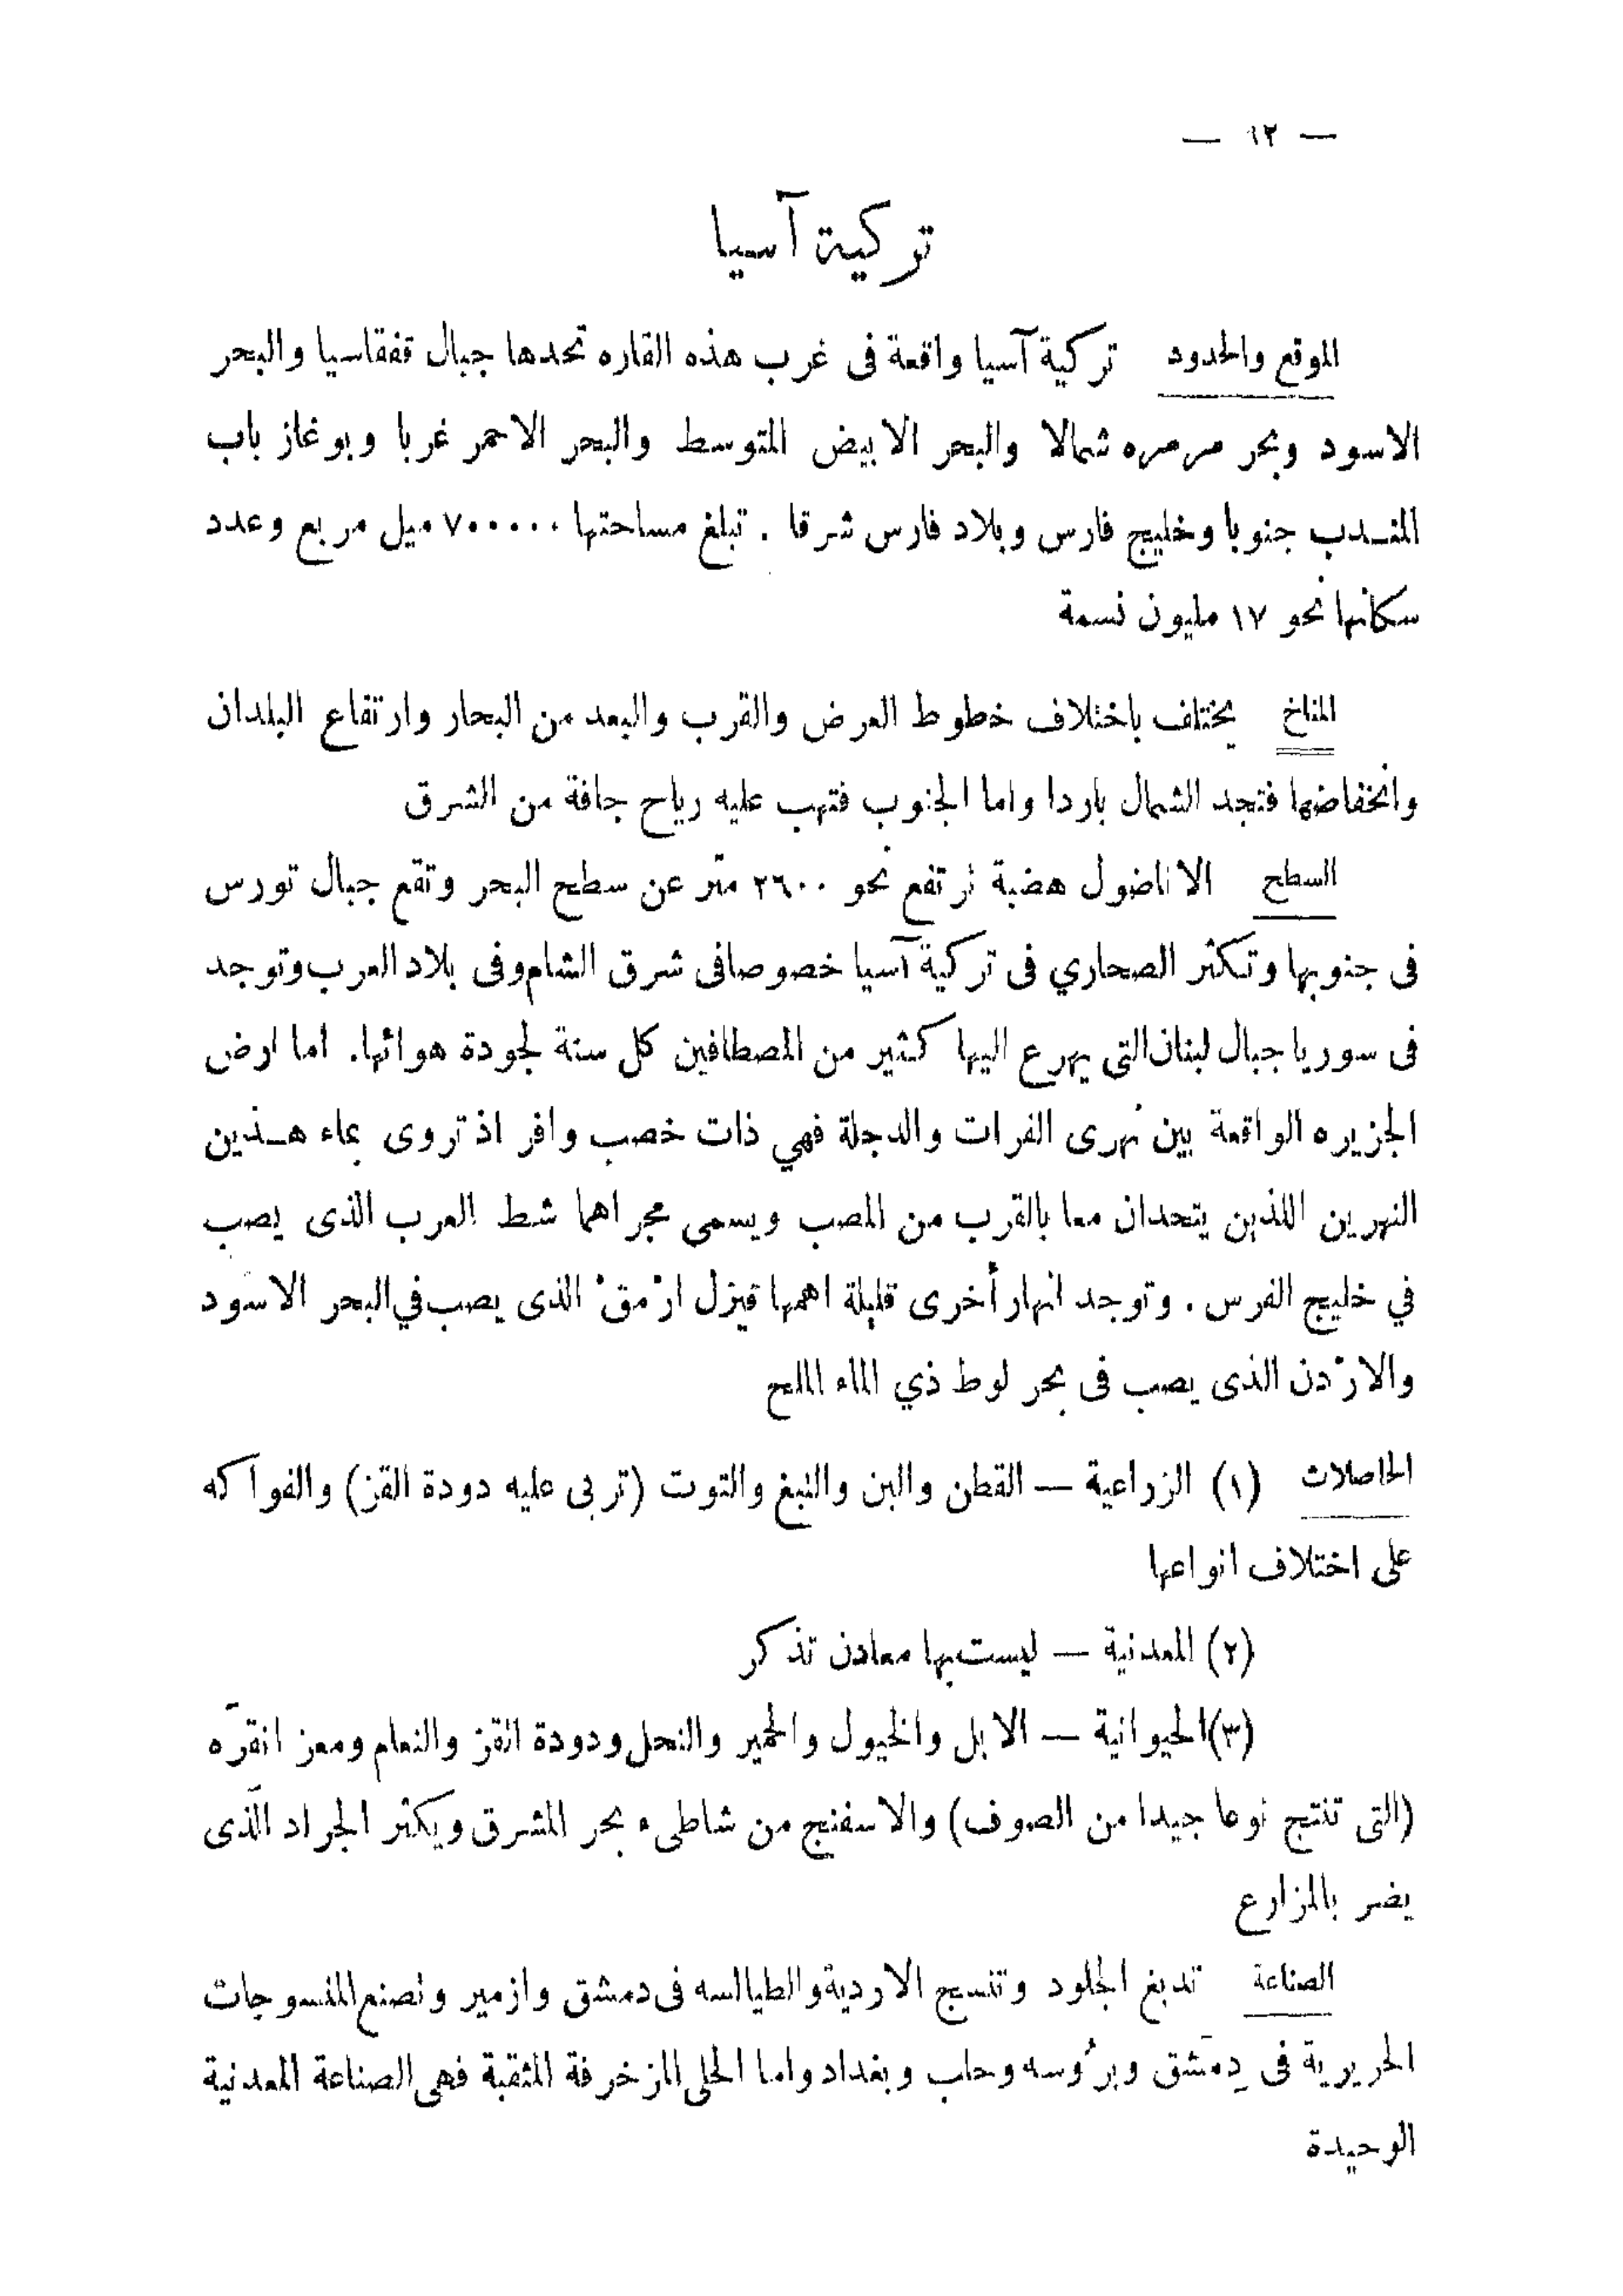 — ١٢ —
تركية آسيا
الموقع والحدود تركية آسيا واقعة فى غرب هذه القاره تحدها جبال قفقاسيا والبحر
الاسود وبحر مرمره شمالا والبحر الابيض المتوسط والبحر الاحمر غربا وبوغاز باب
المندب جنوبا وخليج فارس وبلاد فارس شرقا . تبلغ مساحتها ٧٠٠٠٠٠ ميل مربع وعدد
سكانها نحو ١٧ مليون نسمة
المناخ يختلف باختلاف خطوط العرض والقرب والبعد من البحار وارتفاع البلدان
وانخفاضها فتجد الشمال باردا واما الجنوب فتهب عليه رياح جافة من الشرق
السطح الاناضول هضبة ترتفع نحو ٢٦٠٠ متر عن سطح البحر وتقع جبال تورس
فى جنوبها وتكثر الصحاري فى تركية آسيا خصوصا فى شرق الشام وفى بلاد العرب وتوجد
فى سوريا جبال لبنان التى يهرع اليها كثير من المصطافين كل سنة لجودة هوائها. اما ارض
الجزيره الواقعة بين نهرى الفرات والدجلة فهي ذات خصب وافر اذ تروى بماء هـذين
النهرين اللذين يتحدان معا بالقرب من المصب ويسمى مجراهما شط العرب الذى يصب
في خليج الفرس . وتوجد انهار أخرى قليلة اهمها قيزل ارْمقْ الذى يصب في البحر الاسود
والارْدن الذى يصب فى بحر لوط ذي الماء الملح
الحاصلات (١) الزراعية — القطن والبن والتبغ والتوت (تربى عليه دودة القز) والفواكه
على اختلاف انواعها
(٢) المعدنية — ليست بها معادن تذكر
(٣) الحيوانية — الابل والخيول والحمير والنحل ودودة القز والنعام ومعز انقرَه
(التى تنتج نوعا جيدا من الصوف) والاسفنج من شاطىء بحر المشرق ويكثر الجراد الذى
يضر بالمزارع
الصناعة تدبغ الجلود وتنسج الاردية والطيالسه فى دمشق وازمير وتصنع المنسوجات
الحريرية فى دِمَشق وبرُوسه وحلب وبغداد واما الحلى المزخرفة المثقبة فهى الصناعة المعدنية
الوحيدة